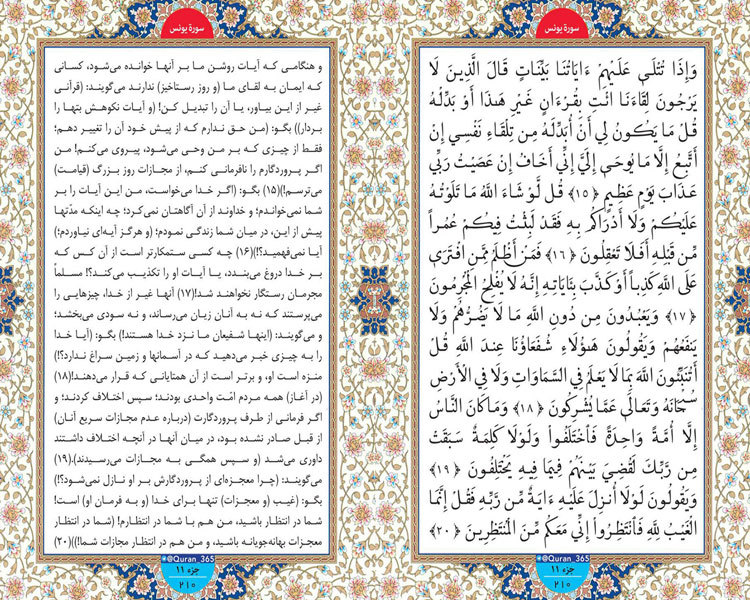 سورهٔ یونس
وَإِذَا تُتْلَىٰ عَلَيْهِمْ ءَايَاتُنَا بَيِّنَاتٍ قَالَ الَّذِينَ لَا
يَرْجُونَ لِقَاءَنَا ائْتِ بِقُرْءَانٍ غَيْرِ هَٰذَا أَوْ بَدِّلْهُ
قُلْ مَا يَكُونُ لِي أَنْ أُبَدِّلَهُ مِن تِلْقَاءِ نَفْسِي إِنْ
أَتَّبِعُ إِلَّا مَا يُوحَىٰ إِلَيَّ إِنِّي أَخَافُ إِنْ عَصَيْتُ رَبِّي
عَذَابَ يَوْمٍ عَظِيمٍ ﴿۱۵﴾ قُل لَّوْ شَاءَ اللَّهُ مَا تَلَوْتُهُ
عَلَيْكُمْ وَلَا أَدْرَاكُم بِهِ فَقَدْ لَبِثْتُ فِيكُمْ عُمُراً
مِّن قَبْلِهِ أَفَلَا تَعْقِلُونَ ﴿۱۶﴾ فَمَنْ أَظْلَمُ مِمَّنِ افْتَرَىٰ
عَلَى اللَّهِ كَذِباً أَوْ كَذَّبَ بِئَايَاتِهِ إِنَّهُ لَا يُفْلِحُ الْمُجْرِمُونَ
﴿۱۷﴾ وَيَعْبُدُونَ مِن دُونِ اللَّهِ مَا لَا يَضُرُّهُمْ وَلَا
يَنفَعُهُمْ وَيَقُولُونَ هَٰؤُلَاءِ شُفَعَاؤُنَا عِندَ اللَّهِ قُلْ
أَتُنَبِّئُونَ اللَّهَ بِمَا لَا يَعْلَمُ فِي السَّمَاوَاتِ وَلَا فِي الْأَرْضِ
سُبْحَانَهُ وَتَعَالَىٰ عَمَّا يُشْرِكُونَ ﴿۱۸﴾ وَمَا كَانَ النَّاسُ
إِلَّا أُمَّةً وَاحِدَةً فَاخْتَلَفُوا وَلَوْلَا كَلِمَةٌ سَبَقَتْ
مِن رَّبِّكَ لَقُضِيَ بَيْنَهُمْ فِيمَا فِيهِ يَخْتَلِفُونَ ﴿۱۹﴾
وَيَقُولُونَ لَوْلَا أُنزِلَ عَلَيْهِ ءَايَةٌ مِّن رَّبِّهِ فَقُلْ إِنَّمَا
الْغَيْبُ لِلَّهِ فَانتَظِرُوا إِنِّي مَعَكُم مِّنَ الْمُنتَظِرِينَ ﴿۲۰﴾
@Quran_365
جزء ۱۱
۲۱۰
سورهٔ یونس
و هنگامی که آیات روشن ما بر آنها خوانده می‌شود، کسانی
که ایمان به لقای ما (و روز رستاخیز) ندارند می‌گویند: (قرآنی
غیر از این بیاور، یا آن را تبدیل کن! (و آیات نکوهش بتها را
بردار)) بگو: (من حق ندارم که از پیش خود آن را تغییر دهم؛
فقط از چیزی که بر من وحی می‌شود، پیروی می‌کنم! من
اگر پروردگارم را نافرمانی کنم، از مجازات روز بزرگ (قیامت)
می‌ترسم!)(۱۵) بگو: (اگر خدا می‌خواست، من این آیات را بر
شما نمی‌خواندم؛ و خداوند از آن آگاهتان نمی‌کرد؛ چه اینکه مدّتها
پیش از این، در میان شما زندگی نمودم؛ (و هرگز آیه‌ای نیاوردم؛)
آیا نمی‌فهمید؟!)(۱۶) چه کسی ستمکارتر است از آن کس که
بر خدا دروغ می‌بندد، یا آیات او را تکذیب می‌کند؟! مسلماً
مجرمان رستگار نخواهند شد!(۱۷) آنها غیر از خدا، چیزهایی را
می‌پرستند که نه به آنان زیان می‌رساند، و نه سودی می‌بخشد؛
و می‌گویند: (اینها شفیعان ما نزد خدا هستند!) بگو: (آیا خدا
را به چیزی خبر می‌دهید که در آسمانها و زمین سراغ ندارد؟!)
منزه است او، و برتر است از آن همتایانی که قرار می‌دهند!(۱۸)
(در آغاز) همه مردم امّت واحدی بودند؛ سپس اختلاف کردند؛ و
اگر فرمانی از طرف پروردگارت (درباره عدم مجازات سریع آنان)
از قبل صادر نشده بود، در میان آنها در آنچه اختلاف داشتند
داوری می‌شد (و سپس همگی به مجازات می‌رسیدند).(۱۹)
می‌گویند: (چرا معجزه‌ای از پروردگارش بر او نازل نمی‌شود؟!)
بگو: (غیب (و معجزات) تنها برای خدا (و به فرمان او) است!
شما در انتظار باشید، من هم با شما در انتظارم! (شما در انتظار
معجزات بهانه‌جویانه باشید، و من هم در انتظار مجازات شما!))(۲۰)
@Quran_365
جزء ۱۱
۲۱۰